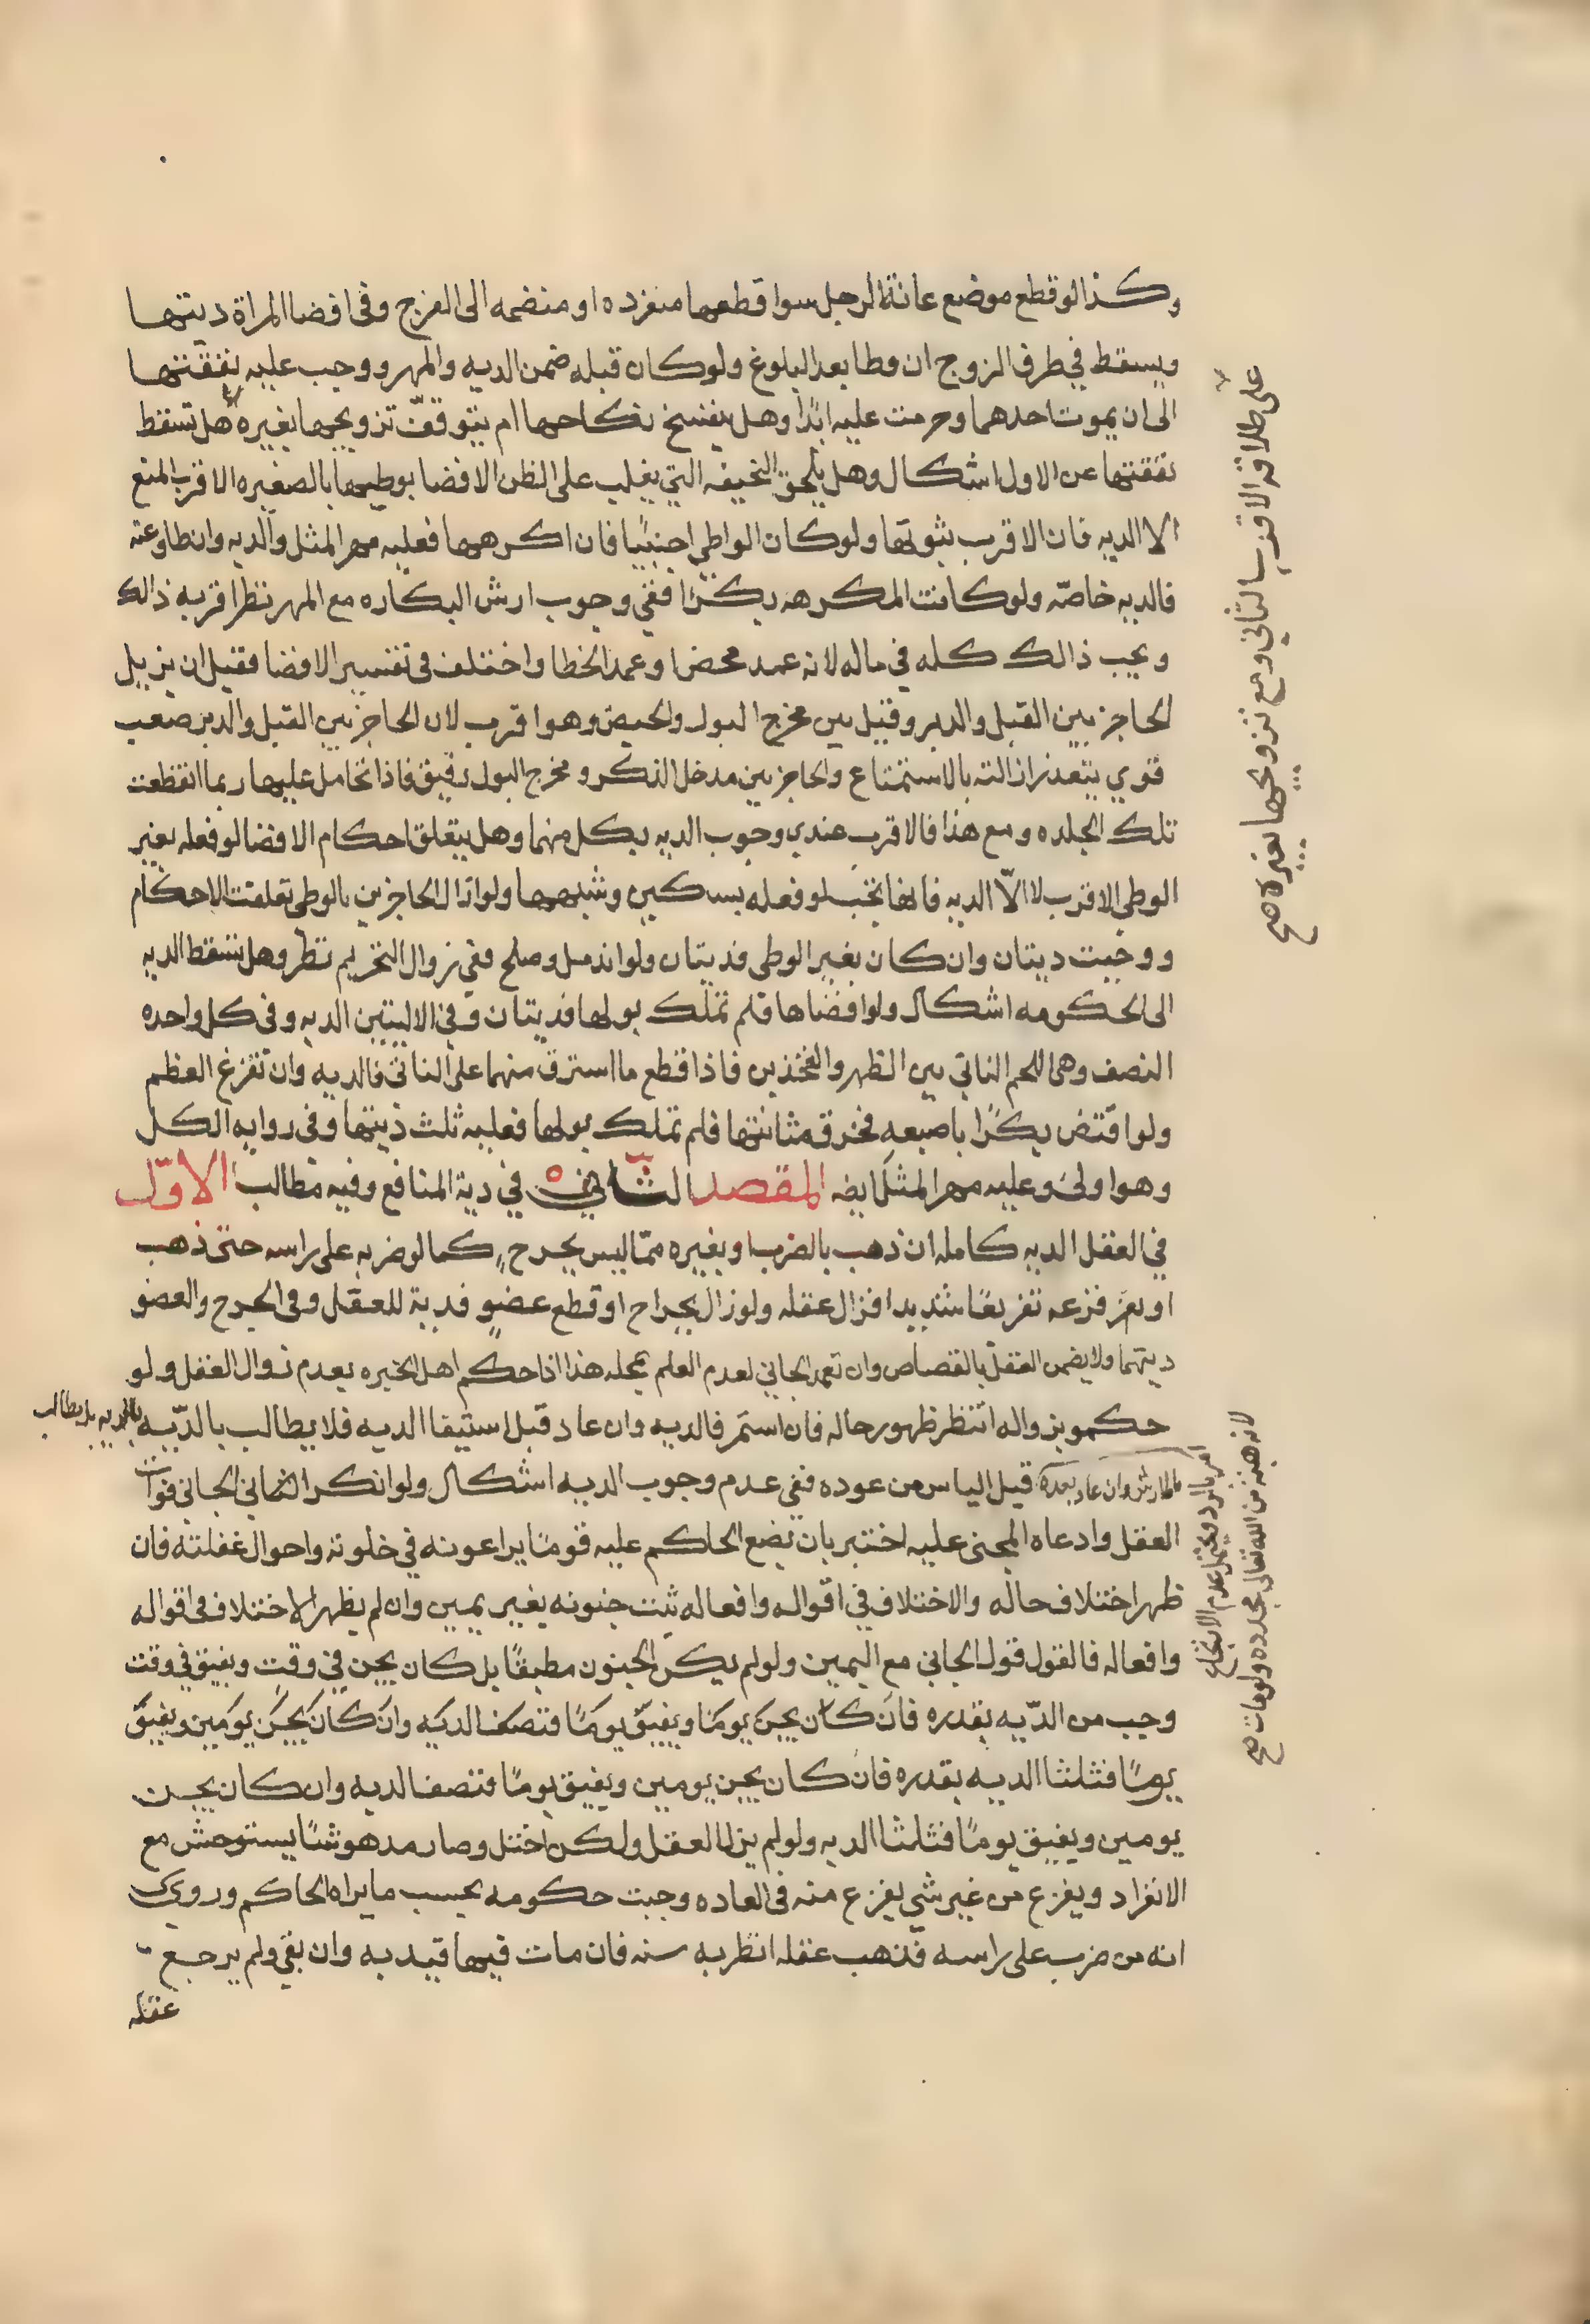 وكذا لو قطع موضع عانة الرجل سوا قطعها منفرده او منضمه الى الفرج وفي افضا المراة ديتها
ويسقط في طرف الزوج ان وطا بعد البلوغ ولو كان قبله ضمن الديه والمهر ووجب عليه نفقتها
الى ان يموت احدهما وحرمت عليه ابدًا وهل ينفسخ نكاحها ام يتوقف تزويجها بغيره هل تسقط
نفقتها عن الاول اشكال وهل يلحق النحيفه التي يغلب على الظن الافضا بوطيها بالصغيره الاقرب المنع
الا الديه فان الاقرب ثبوتها ولو كان الواطي اجنبيًا فان اكرهها فعليه مهر المثل والديه وان طاوعته
فالديه خاصّه ولو كانت المكرهه بكرًا ففي وجوب ارش البكاره مع المهر نظر اقربه ذالك
ويجب ذالك كله في ماله لانه عمد محض او عمد الخطا واختلف في تفسير الافضا فقيل ان يزيل
الحاجز بين القبل والدبر وقيل بين مخرج البول والحيض وهو اقرب لان الحاجز بين القبل والدبر صعب
قوي يتعذر ازالته بالاستمتاع والحاجز بين مدخل الذكر ومخرج البول رقيق فاذا تحامل عليها ربما انقطعت
تلك الجلده ومع هذا فالاقرب عندي وجوب الديه بكل منهما وهل يتعلق احكام الافضا لو فعله بغير
الوطي الاقرب لا الّا الديه فانها تجب لو فعله بسكين وشبهها ولو ازال الحاجزين بالوطي تعلقت الاحكام
ووجبت ديتان وان كان بغير الوطي فديتان ولو اندمل وصلح ففي زوال التحريم نظر وهل تسقط الديه
الى الحكومه اشكال ولو افضاها فلم تملك بولها فديتان وفي الاليتين الديه وفي كل واحده
النصف وهي اللحم الناتي بين الظهر والفخذين فاذا قطع ما استرق منهما على الناتي فالديه وان تفزغ العظم
ولو اقتض بكرًا باصبعه فخرق مثانتها فلم تملك بولها فعليه ثلث ديتها وفي روايه الكل
وهو اولى وعليه مهر المثل ايضه المقصد الثاني في دية المنافع وفيه مطالب الاوّل
في العقل الديه كامله ان ذهب بالضرب او بغيره ممّا ليس بجرح كما لو ضربه على راسه حتى ذهب
او بعَز فزعه تفزيعًا شديدا فزال عقله ولو زال بجراح او قطع عضوٍ فدية للعقل وفي الجرح والعضو
ديتهما ولا يضمن العقل بالقصاص وان تعمد الجاني لعدم العلم بمحله هذا اذا حكم اهل الخبره بعدم زوال العقل ولو
حكمو بزواله انتظر ظهور حاله فان استمر فالديه وان عاد قبل استيفا الديه فلا يطالب بالدّيه بل يطالب
بالارش وان عاد بعده قبل الياس من عوده ففي عدم وجوب الديه اشكال ولو انكر الجاني فوات
العقل وادعاه المجنى عليه اختبر بان يضع الحاكم عليه قومًا يراعونه في خلوته واحوال غفلته فان
ظهر اختلاف حاله والاختلاف في اقواله وافعاله ثبت جنونه بغير يمين وان لم يظهر الاختلاف في اقواله
وافعاله فالقول قول الجاني مع اليمين ولو لم يكن الجنون مطبقًا بل كان يجن في وقتٍ ويفيق في وقت
وجب من الدّيه بقدره فان كان يجن يومًا ويفيق يومًا فنصف الديه وان كان يجن يومين ويفيق
يومًا فثلثا الديه بقدره فان كان يجن يومين ويفيق يومًا فنصف الديه وان كان يجن
يومين ويفيق يومًا فثلثا الديه ولو لم يزل العقل ولكن اختل وصار مدهوشًا يستوحش مع
الانفراد ويفزع من غير شي يفزع منه في العاده وجبت حكومه بحسب ما يراه الحاكم وروي
انه من ضرب على راسه فذهب عقله انتظر به سنه فان مات فيها قيد به وان بقي ولم يرجع
عقله
على طلاقه الاقرب الثاني ومع تزويجها بغيره صح
امر بالرد ويحتمل عدم الارتجاع
لانه هبة من الله تعالى مجدده ولو مات صح